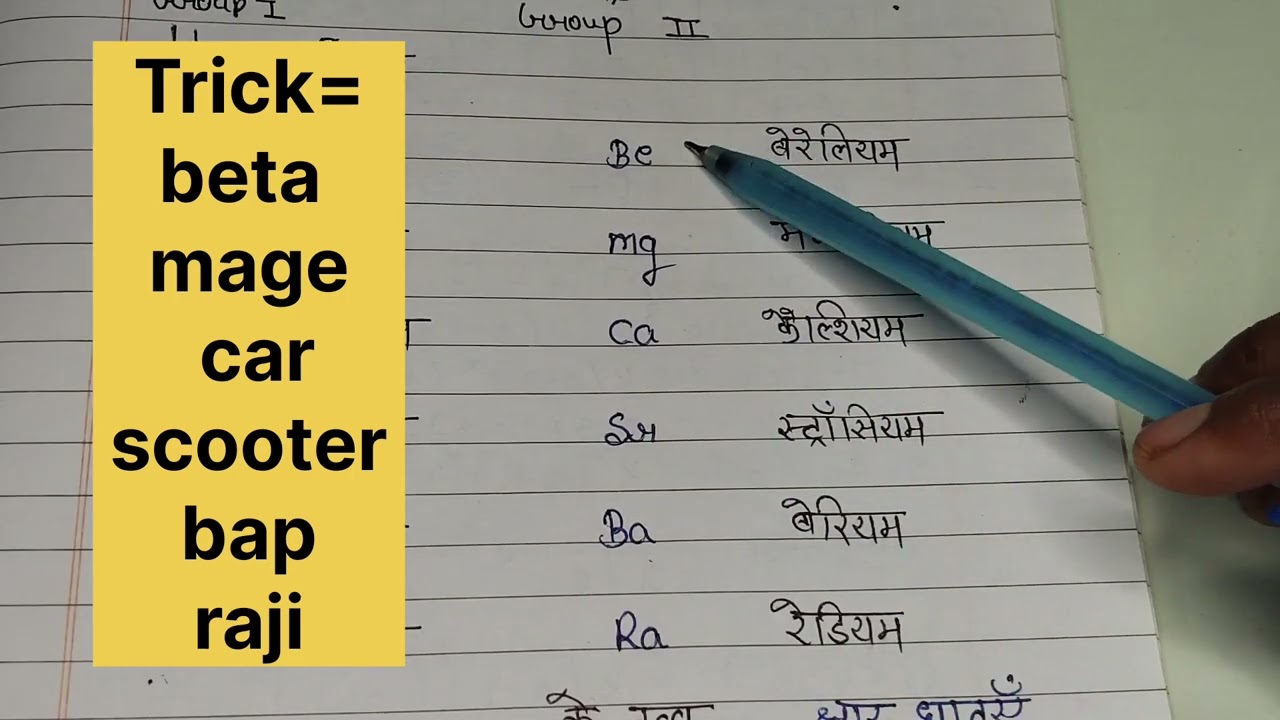 Group I
Group II
Trick=
beta
mage
car
scooter
bap
raji
Be बेरेलियम
mg
Ca कैल्शियम
Sr स्ट्रॉंसियम
Ba बेरियम
Ra रेडियम
क्षार धातुएँ